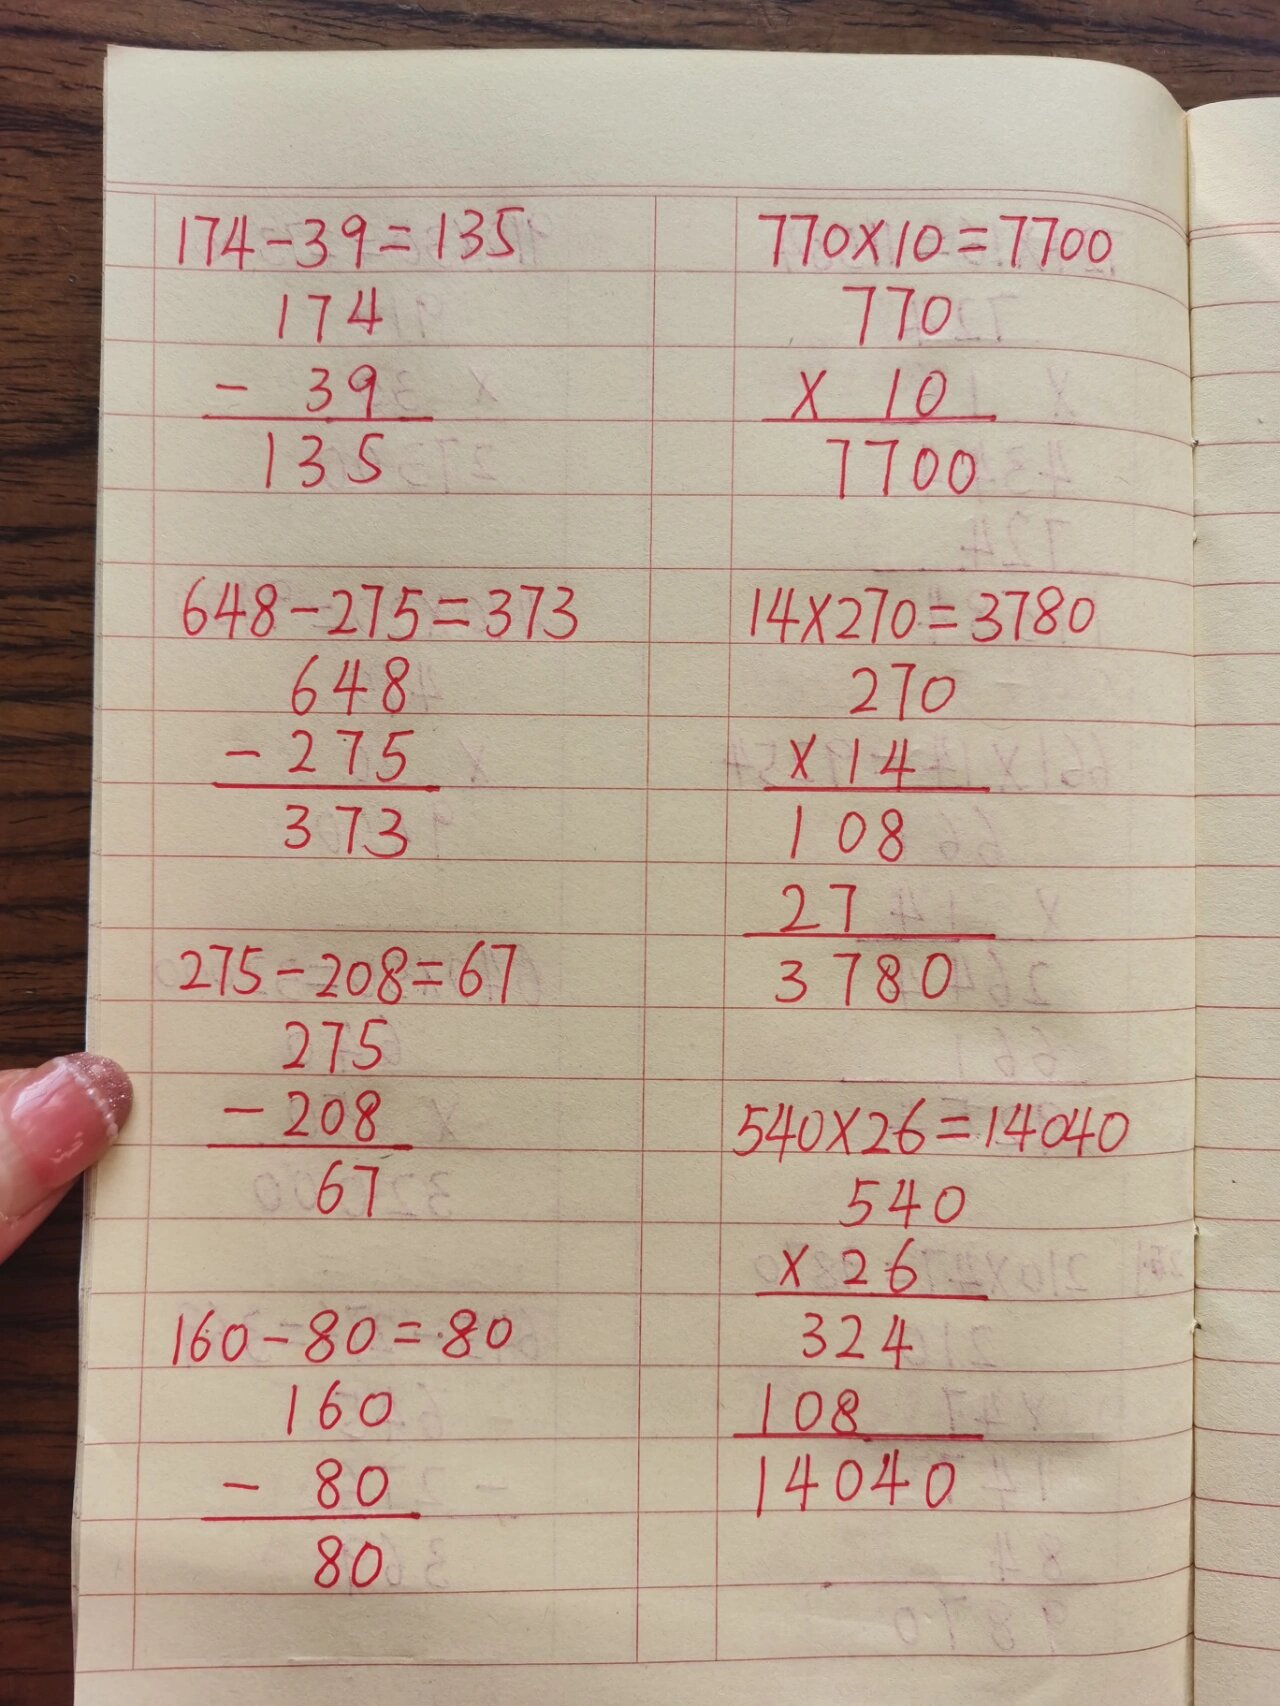 174-39=135
174
- 39
135
648-275=373
648
-275
373
275-208=67
275
-208
67
160-80=80
160
- 80
80
770×10=7700
770
× 10
7700
14×270=3780
270
×14
108
27
3780
540×26=14040
540
×26
324
108
14040